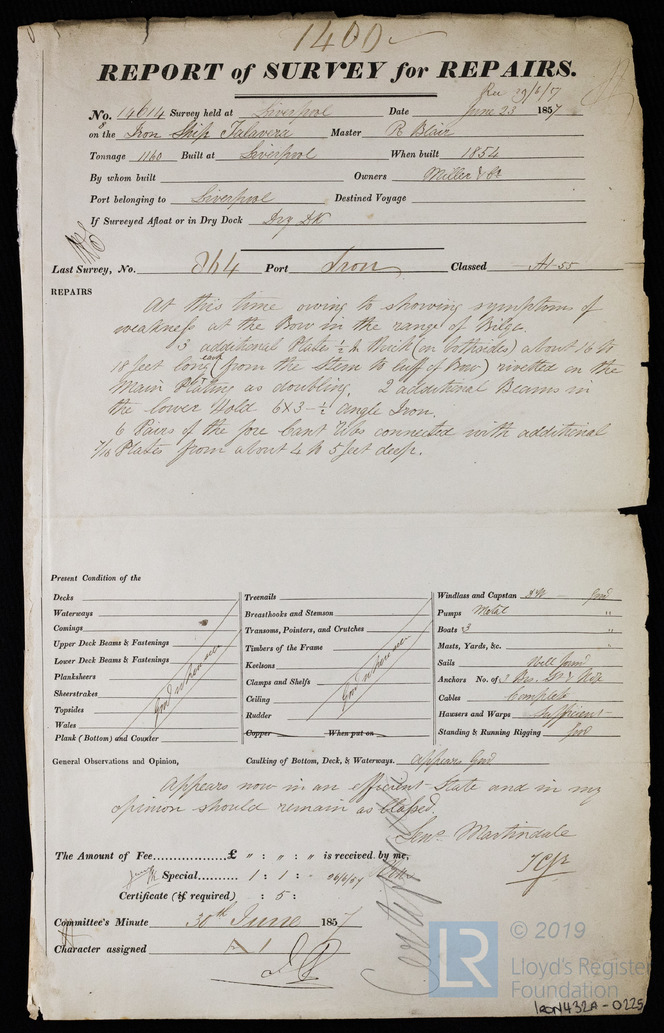 1400
REPORT of SURVEY for REPAIRS.
Rec 29/6/57
No. 14614 Survey held at Liverpool Date June 23 1857
on the Iron Ship Talavera Master R Blair
Tonnage 1140 Built at Liverpool When built 1854
By whom built Owners Miller & Co
Port belonging to Liverpool Destined Voyage
If Surveyed Afloat or in Dry Dock Dry Dk
Last Survey, No. 364 Port Iron Classed A1-55
REPAIRS
At this time owing to showing symptoms of
weakness at the Bow in the range of Bilge.
3 additional Plates ½ In thick (on both sides) about 16 to
18 feet long each (from the Stem to luff of Bow) rivetted on the
Main Plating as doubling. 2 additional Beams in
the lower Hold 6x3-½ angle Iron.
6 Pairs of the fore Cant Ribs connected with additional
7/16 Plates from about 4 to 5 feet deep.
Present Condition of the
Decks Treenails Windlass and Capstan good
Waterways Breasthooks and Stemson Pumps Metal "
Comings Transoms, Pointers, and Crutches Boats 3 "
Upper Deck Beams & Fastenings Timbers of the Frame Masts, Yards, &c. "
Lower Deck Beams & Fastenings Keelsons Sails Well found
Planksheers Clamps and Shelfs Anchors No. of 3
Sheerstrakes Ceiling Cables Complete
Topsides Rudder Hawsers and Warps Sufficient
Wales Copper When put on Standing & Running Rigging good
Plank (Bottom) and Counter
Good where seen
Good where seen
General Observations and Opinion, Caulking of Bottom, Deck, & Waterways. appears Good
Appears now in an efficient State and in my
opinion should remain as Classed.
Martindale
The Amount of Fee £ " : " : " is received by me,
Special 1 : 1 : - 26/6/57
Certificate (if required) : 5 :
Committee's Minute 30th June 1857
Character assigned A 1
© 2019
LR
Lloyd's Register
Foundation
IRON432A-0225